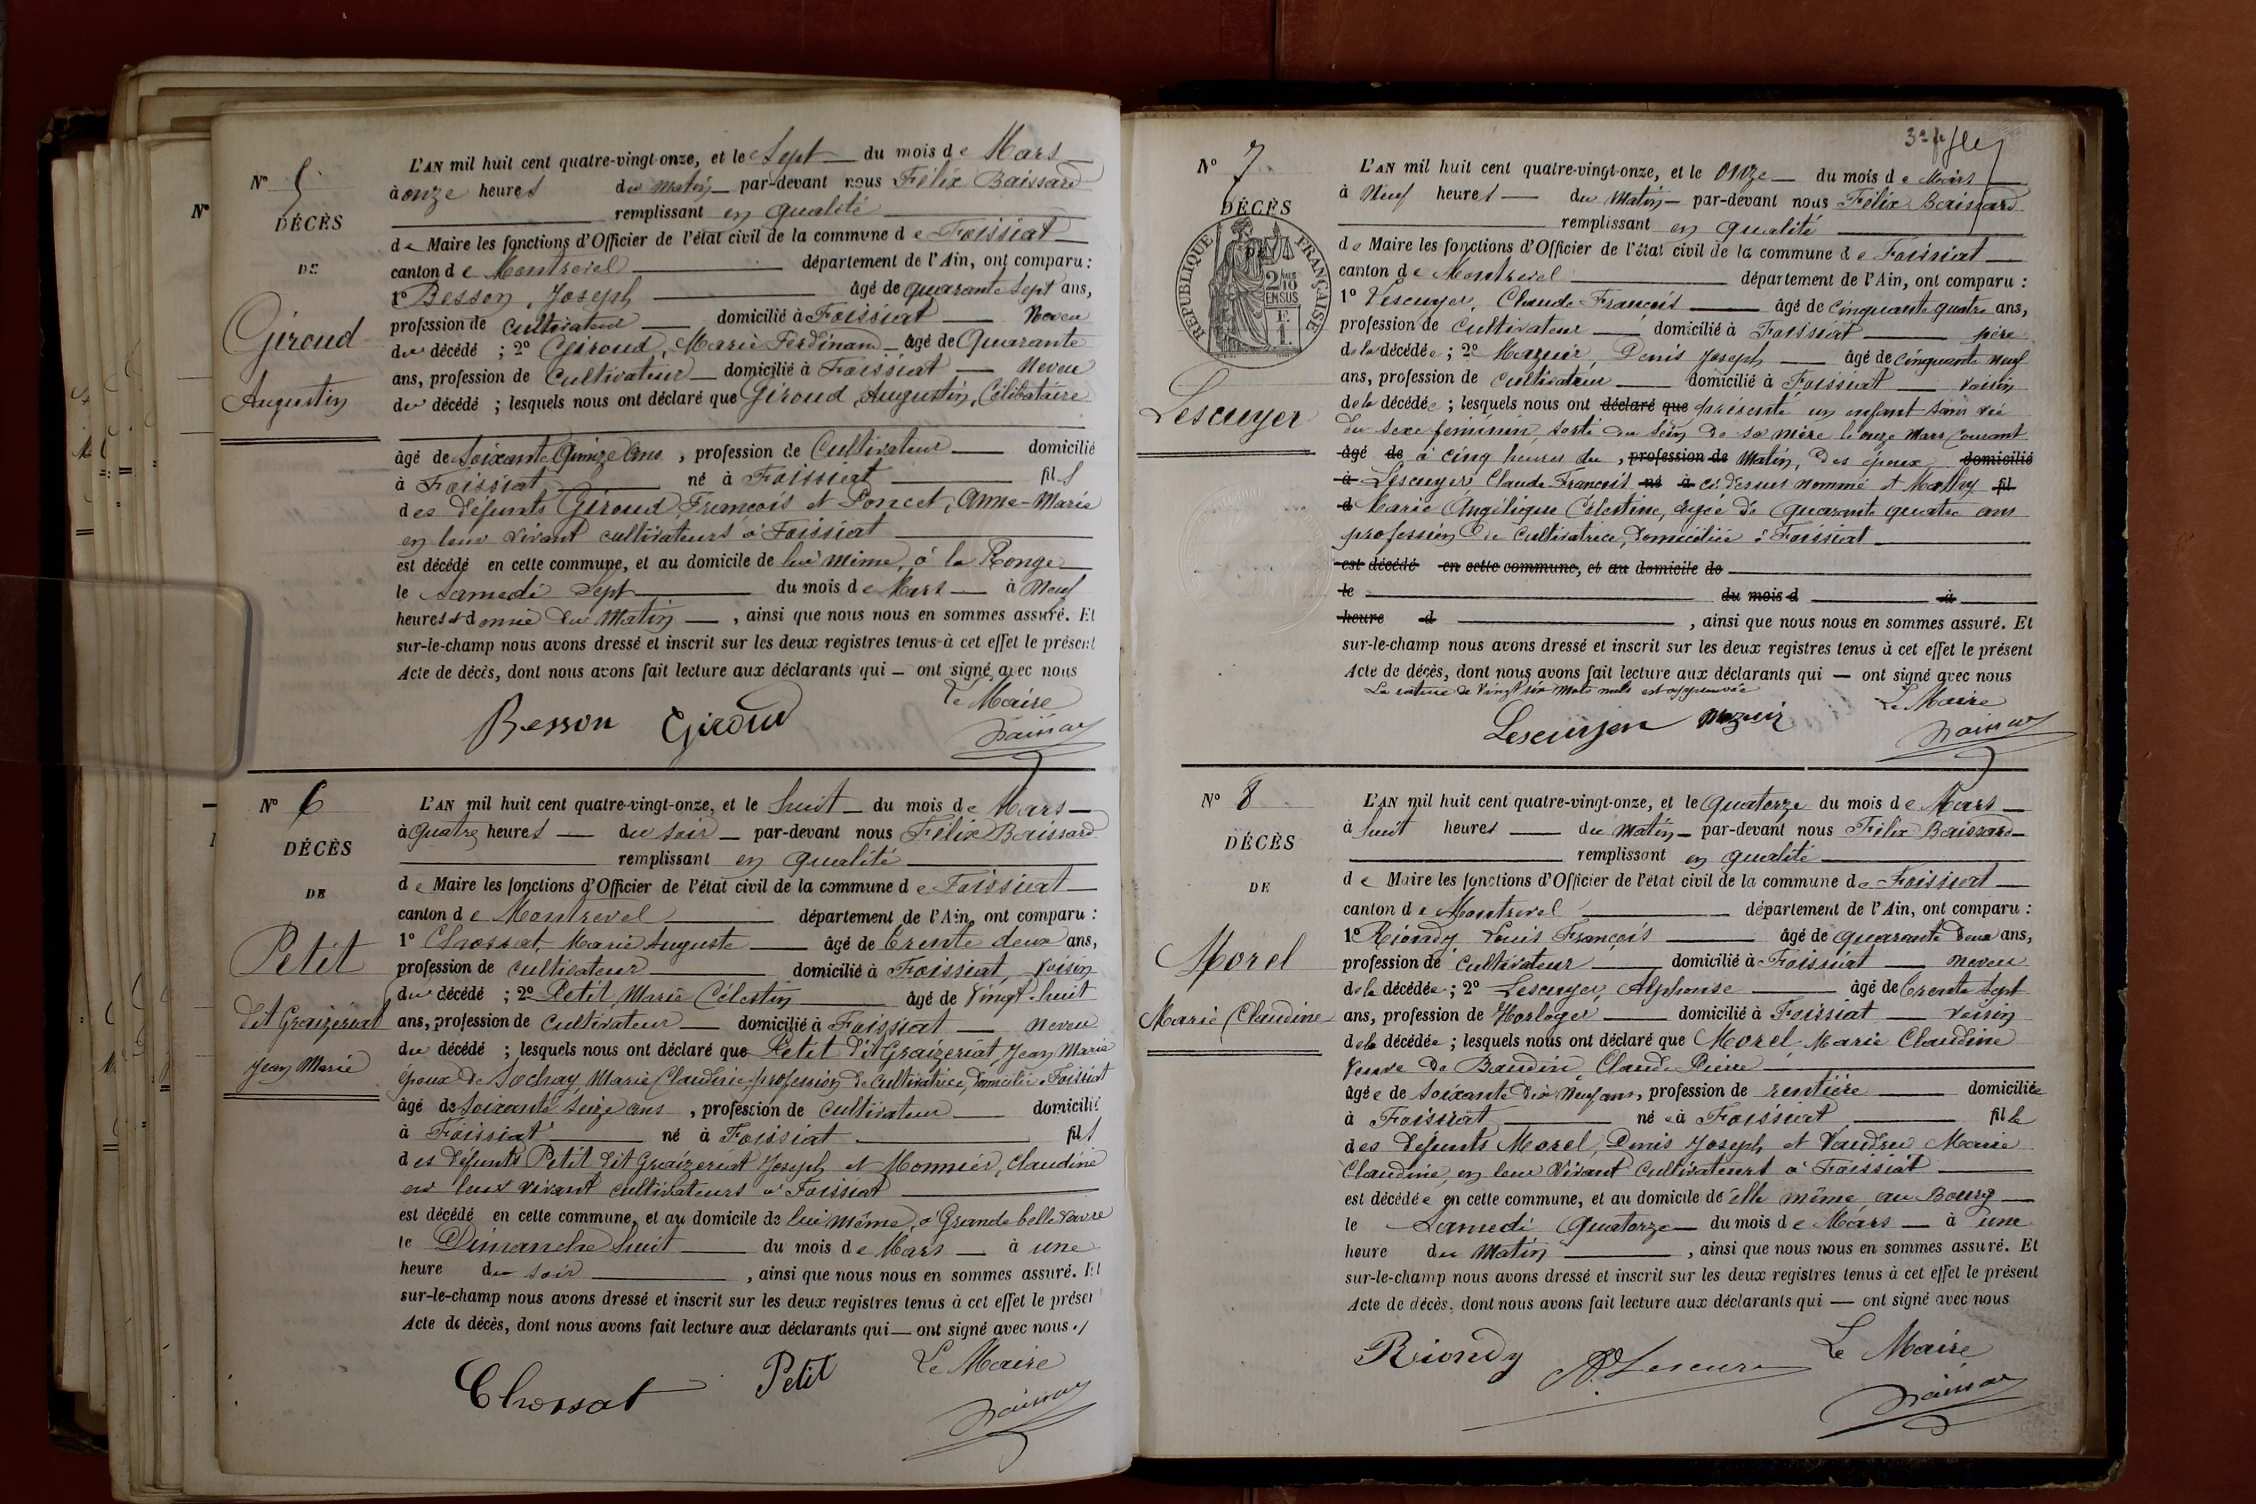 N° 5
DÉCÈS
DE
Giroud
Augustin
L'AN mil huit cent quatre-vingt-onze, et le Sept du mois de Mars
à onze heures du Matin par-devant nous Félix Baissard
remplissant en qualité
de Maire les fonctions d'Officier de l'état civil de la commune de Foissiat
canton de Montrevel département de l'Ain, ont comparu :
1° Besson, Joseph âgé de quarante Sept ans,
profession de Cultivateur domicilié à Foissiat Neveu
du décédé ; 2° Giroud, Marie Ferdinand âgé de Quarante
ans, profession de Cultivateur domicilié à Foissiat Neveu
du décédé ; lesquels nous ont déclaré que Giroud, Augustin, Célibataire
âgé de Soixante Quinze Ans, profession de Cultivateur domicilié
à Foissiat né à Foissiat fils
des défunts Giroud, François et Poncet, Anne-Marie
en leur vivant cultivateurs à Foissiat
est décédé en cette commune, et au domicile de lui même, à la Ronge
le Samedi Sept du mois de Mars à Neuf
heures et demie du Matin, ainsi que nous nous en sommes assuré. Et
sur-le-champ nous avons dressé et inscrit sur les deux registres tenus à cet effet le présent
Acte de décès, dont nous avons fait lecture aux déclarants qui ont signé avec nous
Le Maire
Besson Giroud
N° 6
DÉCÈS
DE
Petit
dit Graizeriat
Jean Marie
L'AN mil huit cent quatre-vingt-onze, et le huit du mois de Mars
à Quatre heures du soir par-devant nous Félix Baissard
remplissant en qualité
de Maire les fonctions d'Officier de l'état civil de la commune de Foissiat
canton de Montrevel département de l'Ain, ont comparu :
1° Chossat, Marie Auguste âgé de trente deux ans,
profession de cultivateur domicilié à Foissiat, Voisin
du décédé ; 2° Petit, Marie Célestin âgé de Vingt-huit
ans, profession de Cultivateur domicilié à Foissiat Neveu
du décédé ; lesquels nous ont déclaré que Petit dit Graizeriat, Jean Marie
époux de Sochay, Marie Claudine, profession de cultivatrice, domiciliée à Foissiat
âgé de soixante seize ans, profession de cultivateur domicilié
à Foissiat né à Foissiat fils
des défunts Petit dit Graizeriat Joseph et Monnier, Claudine
en leur vivant cultivateurs à Foissiat
est décédé en cette commune, et au domicile de lui même, à Grande belle
le Dimanche huit du mois de Mars à une
heure du soir, ainsi que nous nous en sommes assuré. Et
sur-le-champ nous avons dressé et inscrit sur les deux registres tenus à cet effet le présent
Acte de décès, dont nous avons fait lecture aux déclarants qui ont signé avec nous
Le Maire
Chossat Petit
N° 7
DÉCÈS
DE
RÉPUBLIQUE FRANÇAISE
Lescuyer
L'AN mil huit cent quatre-vingt-onze, et le onze du mois de Mars
à Neuf heures du Matin par-devant nous Félix Baissard
remplissant en qualité
de Maire les fonctions d'Officier de l'état civil de la commune de Foissiat
canton de Montrevel département de l'Ain, ont comparu :
1° Lescuyer, Claude-François âgé de cinquante quatre ans,
profession de Cultivateur domicilié à Foissiat père
de la décédée ; 2° Mazuir, Denis Joseph âgé de cinquante neuf
ans, profession de cultivateur domicilié à Foissiat Voisin
de la décédée ; lesquels nous ont déclaré que présenté un enfant sans vie
du sexe féminin, sorti du sein de sa mère le onze Mars courant
âgé de à cinq heures du, profession de Matin, des époux domicilié
à Lescuyer Claude-François né à ci-dessus nommé et Mathy fil
d Marie Angélique Célestine, âgée de quarante quatre ans
profession de cultivatrice, domiciliée à Foissiat
est décédé en cette commune, et au domicile de
le du mois d à
heure d, ainsi que nous nous en sommes assuré. Et
sur-le-champ nous avons dressé et inscrit sur les deux registres tenus à cet effet le présent
Acte de décès, dont nous avons fait lecture aux déclarants qui ont signé avec nous
La rature de Vingt six mots nuls est approuvée
Le Maire
Mazuir
N° 8
DÉCÈS
DE
Morel
Marie Claudine
L'AN mil huit cent quatre-vingt-onze, et le Quatorze du mois de Mars
à huit heures du Matin par-devant nous Félix Baissard
remplissant en qualité
de Maire les fonctions d'Officier de l'état civil de la commune de Foissiat
canton de Montrevel département de l'Ain, ont comparu :
1° Riondy, Louis François âgé de quarante Deux ans,
profession de Cultivateur domicilié à Foissiat neveu
de la décédée ; 2° Lescuyer, Alphonse âgé de trente sept
ans, profession de Horloger domicilié à Foissiat Voisin
de la décédée ; lesquels nous ont déclaré que Morel Marie Claudine
Veuve de Baudin, Claude Pierre
âgée de soixante dix Neuf ans, profession de rentière domiciliée
à Foissiat née à Foissiat fille
des défunts Morel, Denis Joseph et Vaudru Marie
Claudine, en leur Vivant Cultivateurs à Foissiat
est décédée en cette commune, et au domicile de elle même au Bourg
le Samedi Quatorze du mois de Mars à une
heure du Matin, ainsi que nous nous en sommes assuré. Et
sur-le-champ nous avons dressé et inscrit sur les deux registres tenus à cet effet le présent
Acte de décès, dont nous avons fait lecture aux déclarants qui ont signé avec nous
Le Maire
Riondy